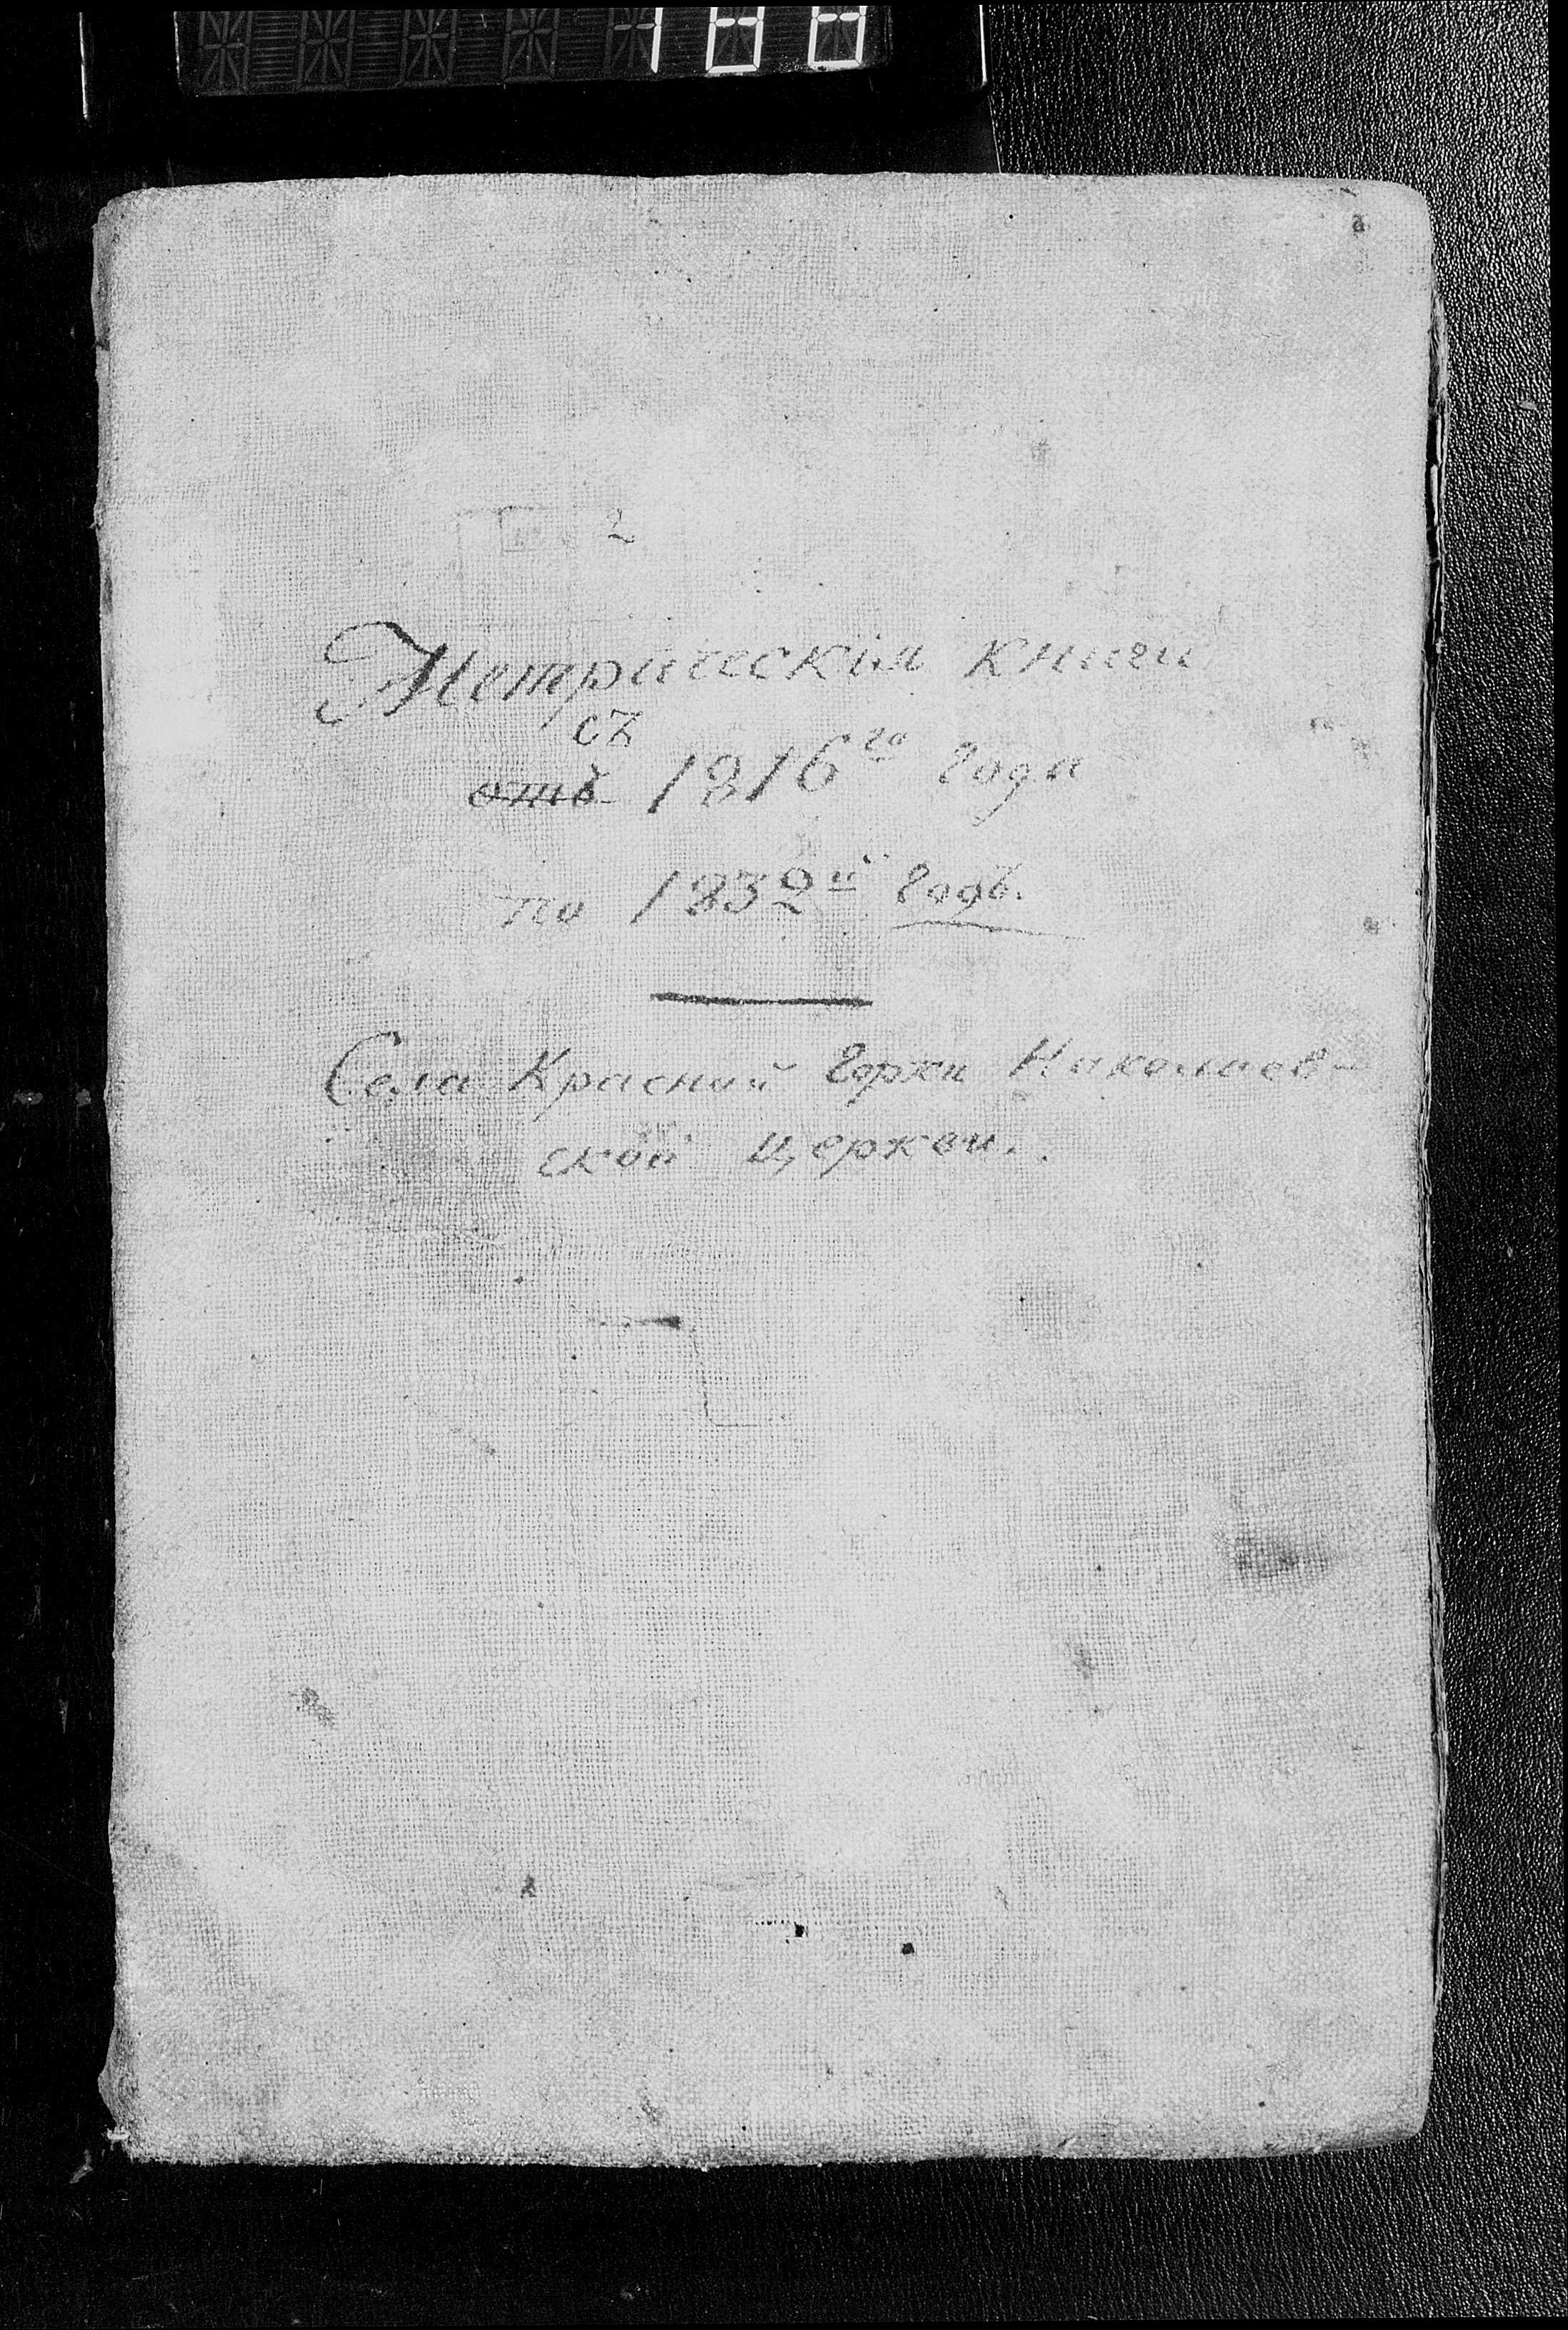 2
Метрическія книги
съ
отъ 1816го года
по 1832й годъ.
Села Красной Горки Николаев-
ской церкви.